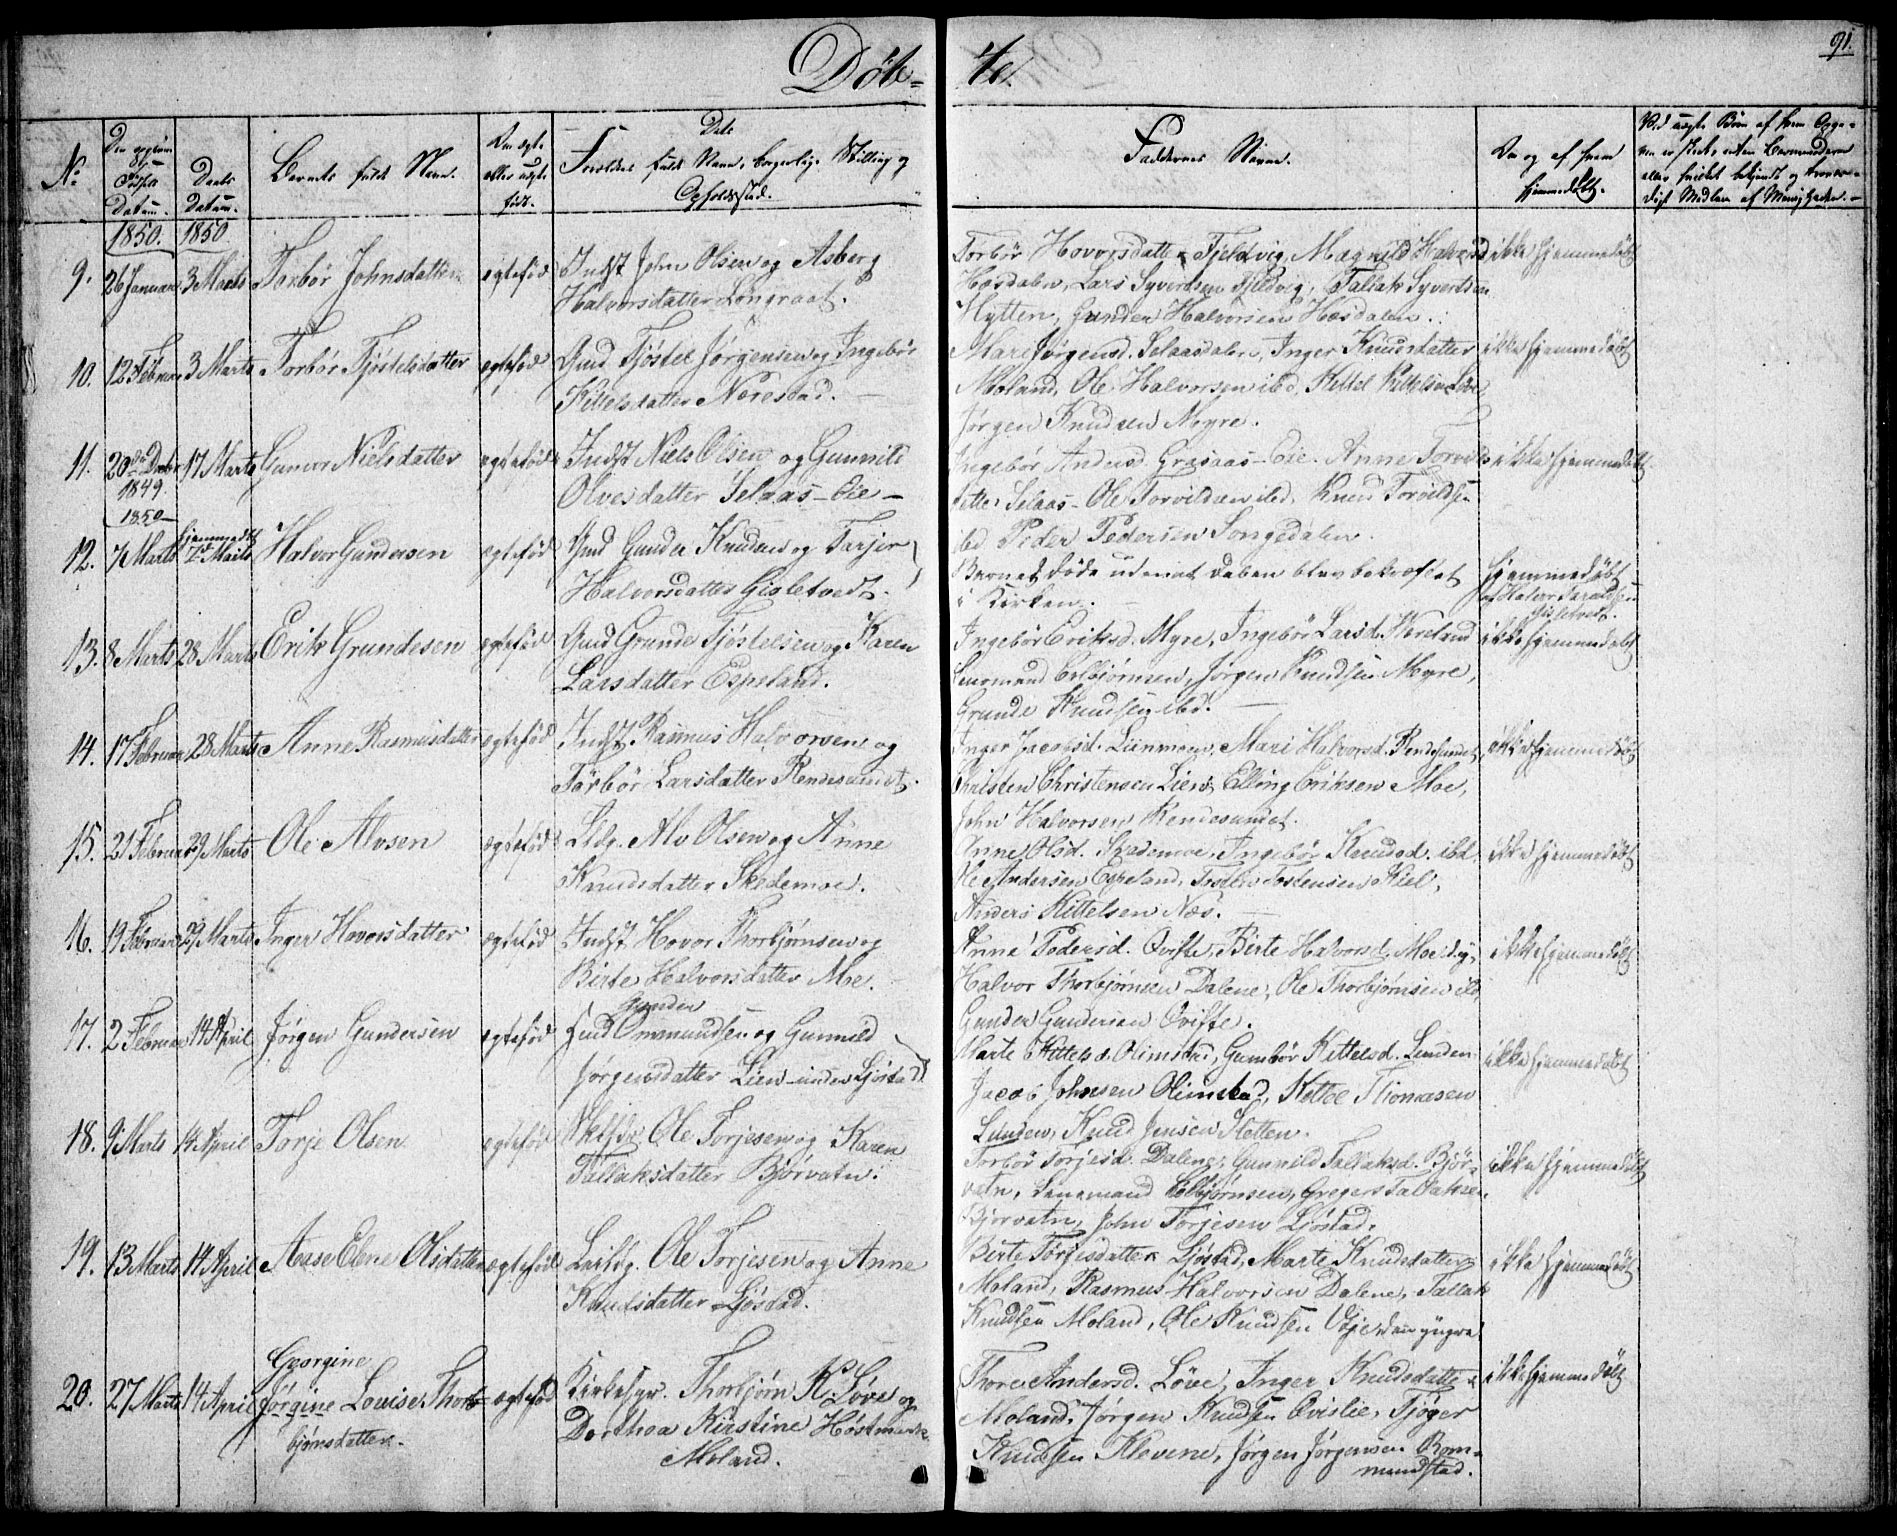 Døb=
te.
91.
No
Datum.
Daabs
Datum.
Barnets fulde Navn.
Om ægte
eller uægte
født.
Dets
Forældres fulde Navn, borgerlige Stilling og
Opholdssted.
Faddernes Navne.
Om og af hvem
hjemmedøbt.
1850. 1850
9. 26 Januar 3 Marts Torbør Johnsdatter ægtefød Indst John Olsen og Asberg
Halvorsdatter Longraat.
Torbør Hovorsdatter Fjeldvig, Magnild Halvorsd
Hæsdalen, Lars Syvertsen Fjeldvig, Tallak Syvertsen
Hytten, Gunder Halvorsen Hæsdalen.
ikke hjemmedøbt
10. 12 Februar 3 Marts Torbør Tjøstelsdatter ægtefød Gmd Tjøstel Jørgensen og Ingebør
Kittelsdatter Nærestad.
Mari Jørgensd. Selaasdalen, Inger Knudsdatter
Moland, Ole Halvorsen ibd, Kettel Kittelsen Løve
Jørgen Knudsen Myre.
ikke hjemmedøbt
11. 20de Decbr 17 Marts Gunvor Nielsdatter ægtefød Indst Niels Olsen og Gunnild
1849
Olvesdatter Selaas-Eie
Ingebør Andersd. Græsaas-Eie. Anne Torvilds
datter Selaas- Ole Torvildsen ibd. Knud Torvildsen
ibd Peder Pedersen Songedalen.
ikke hjemmedøbt
1850
12. 7 Marts hjemmedøbt
7de Marts Halvor Gundersen ægtefød Gmd Gunder Knudsen og Tarjer
Halvorsdatter Gisletvedt.
Barnet døde uden at daaben blev bekræftet
i Kirken.
hjemmedøbt
af Halvor Taraldsen
Gisletvedt.
13. 8 Marts 28 Marts Erik Grundesen ægtefød Gmd Grunde Tjøstelsen og Karen
Larsdatter Espeland.
Ingebør Eriksd. Myre, Ingebør Larsd. Hereland
Lensmand Esbjørnsen, Jørgen Knudsen Myre,
Grunde Knudsen ibd.
ikke hjemmedøbt
14. 17 Februar 28 Marts Anne Rasmusdatter ægtefød Indst Rasmus Halvorsen og
Torbør Larsdatter Rendesundet.
Inger Jacobsd. Lienmoen, Mari Halvorsd. Rendesundet,
Christen Christensen Lien, Elling Eriksen Moe,
John Halvorsen Rendesundet.
ikke hjemmedøbt
15. 21 Februar 29 Marts Ole Alvsen ægtefød Ldg. Alv Olsen og Anne
Knudsdatter Skedemoe.
Anne Olsd. Skademoe, Ingebør Knudsd. ibd,
Ole Andersen Espeland, Tosten Tostensen Kiel,
Anders Kittelsen Næs.
ikke hjemmedøbt
16. 19 Februar 29 Marts Inger Hovorsdatter ægtefød Indst. Hovor Thorbjørnsen og
Birte Halvorsdatter Moe.
Anne Pedersd. Qvifte, Birte Halvorsd. Moe d.y,
Halvor Thorbjørnsen Dalene, Ole Thorbjørnsen ibd,
Gunder Gundersen Qvifte.
ikke hjemmedøbt
17. 2 Februar 14 April Jørgen Gundersen ægtefød Gunder
Ommundsen og Gunnild
Jørgensdatter Lien under Ljøstad.
Marte Kittelsd. Olimstad, Gumbør Kettelsd. Lunden
Jacob Johnsen Olimstad, Kettel Thomasen
Lunden, Knud Jensen Sletten.
ikke hjemmedøbt
18. 9 Marts 14 April Torje Olsen ægtefød Ole Torjesen og Karen
Tallaksdatter Bjorvatn.
Torbør Torjesd. Dalene, Gunnild Tallaksd. Bjør-
vatn, Lensmand Esbjørnsen, Gregers Tallaksen
Bjorvatn, John Torjesen Ljøstad.
ikke hjemmedøbt
19. 13 Marts 14 April Aase Elene Olsdatter ægtefød Ole Torjesen og Anne
Knudsdatter Ljøstad.
Birte Torjesdatter Ljøstad, Marte Knudsdatter
Moland, Rasmus Halvorsen Dalene, Tallak
Knudsen Moland, Ole Knudsen Veje den yngre
ikke hjemmedøbt
20. 27 Marts 14 April Georgine
Jørgine Louise Thor-
bjørnsdatter. ægtefød Kirkesgr. Thorbjørn K. Løve og
Dorthea Kirstine Høstmark
Moland.
Thore Andersd. Løve, Inger Knudsdatter
Moland, Jørgen Knudsen Qvislie, Tjøger
Knudsen Klevene, Jørgen Jørgensen Rom-
mundstad.
ikke hjemmedøbt